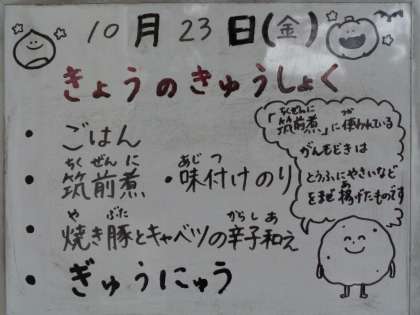 10月23日(金)
きょうのきゅうしょく
・ごはん
ちくぜんに あじつ
・筑前煮 ・味付けのり
や ぶた からしあ
・焼き豚とキャベツの辛子和え
・ぎゅうにゅう
ちくぜんに つか
「筑前煮」に使われている
がんもどきは
とうふにやさいなど
あ
をまぜ揚げたものです